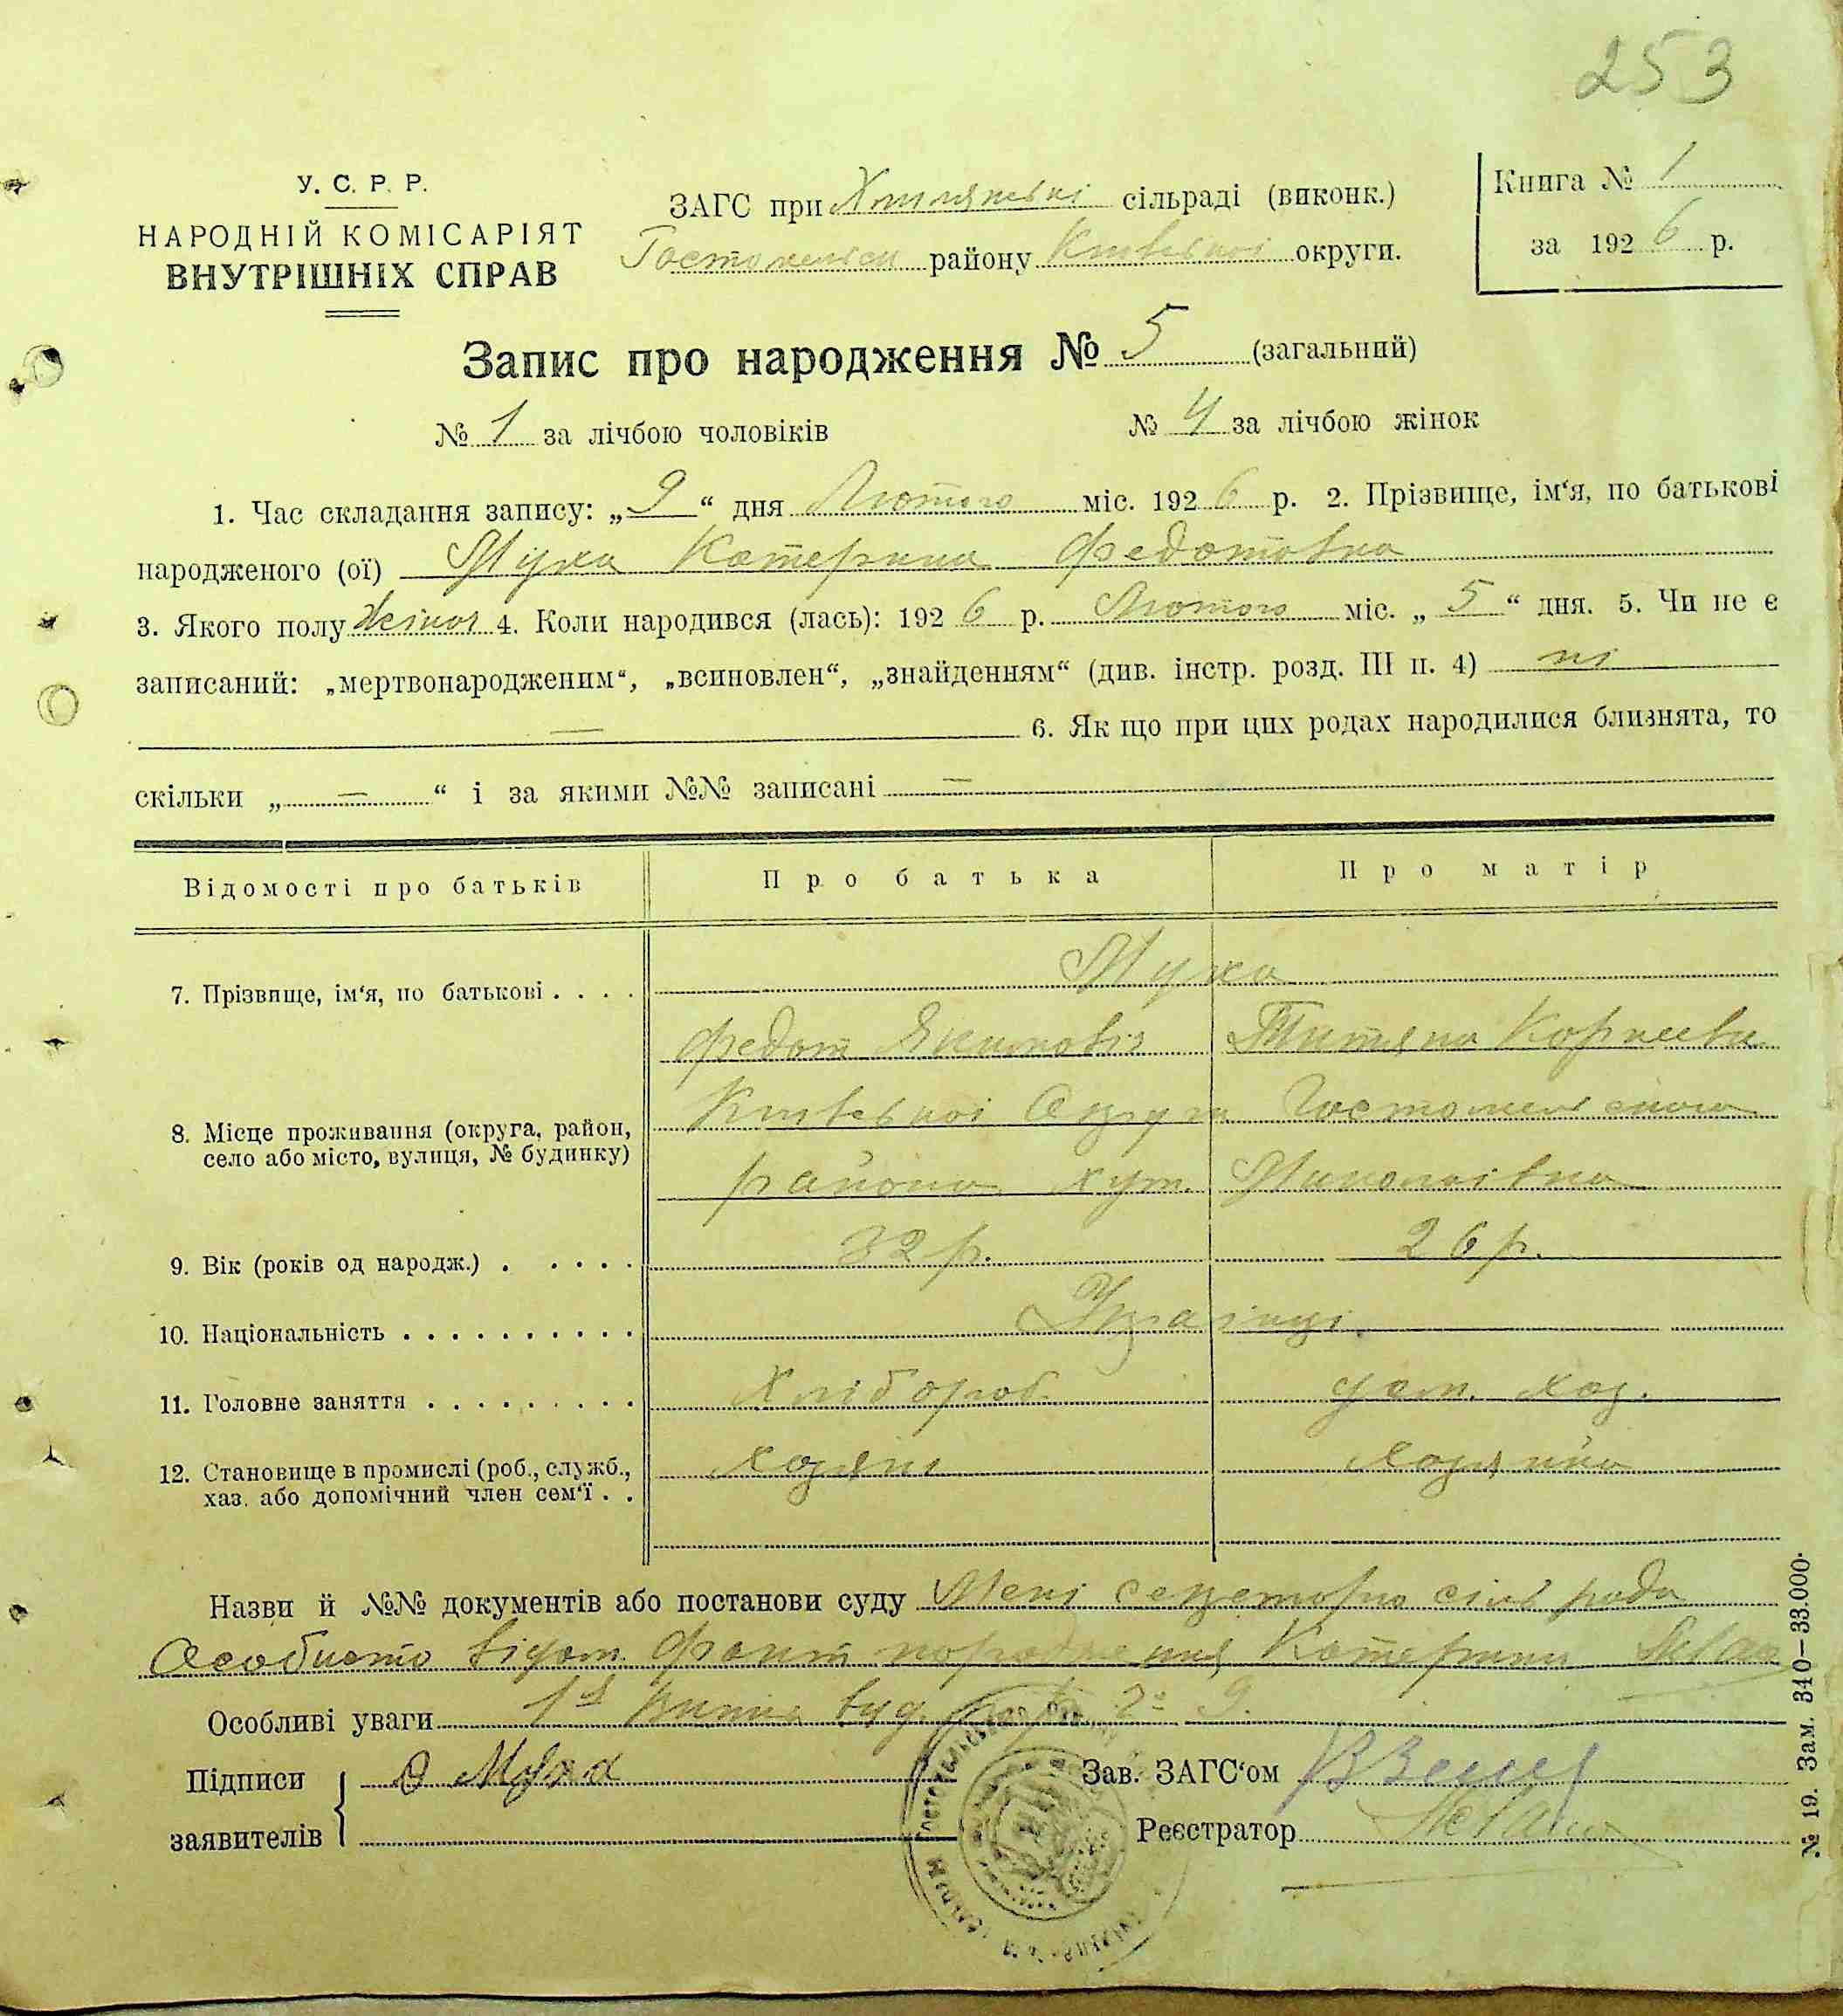 253
У. С. Р. Р.
НАРОДНІЙ КОМІСАРІЯТ
ВНУТРІШНІХ СПРАВ
ЗАГС при сільраді (виконк.)
району Київської округи.
Книга № 1
за 1926 р.
Запис про народження № 5 (загальний)
№ 1 за лічбою чоловіків № 4 за лічбою жінок
1. Час складання запису: „9“ дня Лютого міс. 1926 р. 2. Прізвище, ім‘я, по батькові
народженого (ої) Муха Катерина Федотовна
3. Якого полу жіноч 4. Коли народився (лась): 1926 р. Лютого міс. „5“ дня. 5. Чи не є
записаний: „мертвонародженим“, „всиновлен“, „знайденням“ (див. інстр. розд. III п. 4) ні
— 6. Як що при цих родах народилися близнята, то
скільки „—“ і за якими №№ записані —
Відомості про батьків Про батька Про матір
7. Прізвище, ім‘я, по батькові . . . . Муха
Федот Якимовіч Титяна Корнеевна
8. Місце проживання (округа, район,
село або місто, вулиця, № будинку)
Київської Округи
района хут. Миколаівка
9. Вік (років од народж.) . . . . . 32 р. 26 р.
10. Національність . . . . . . . . . . Украінці.
11. Головне заняття . . . . . . . . . Хлібороб дом. хоз.
12. Становище в промислі (роб., служб.,
хаз. або допомічний член сем‘ї . .
хозяін хозяйка
Назви й №№ документів або постанови суду Мені секретарю сіль ради
Особисто відом. факт народження Катерини
Особливі уваги 1й вид. 9.
Підписи
заявителів
Ф Муха
Зав. ЗАГС‘ом
Реєстратор
№ 19. Зам. 340—33.000.